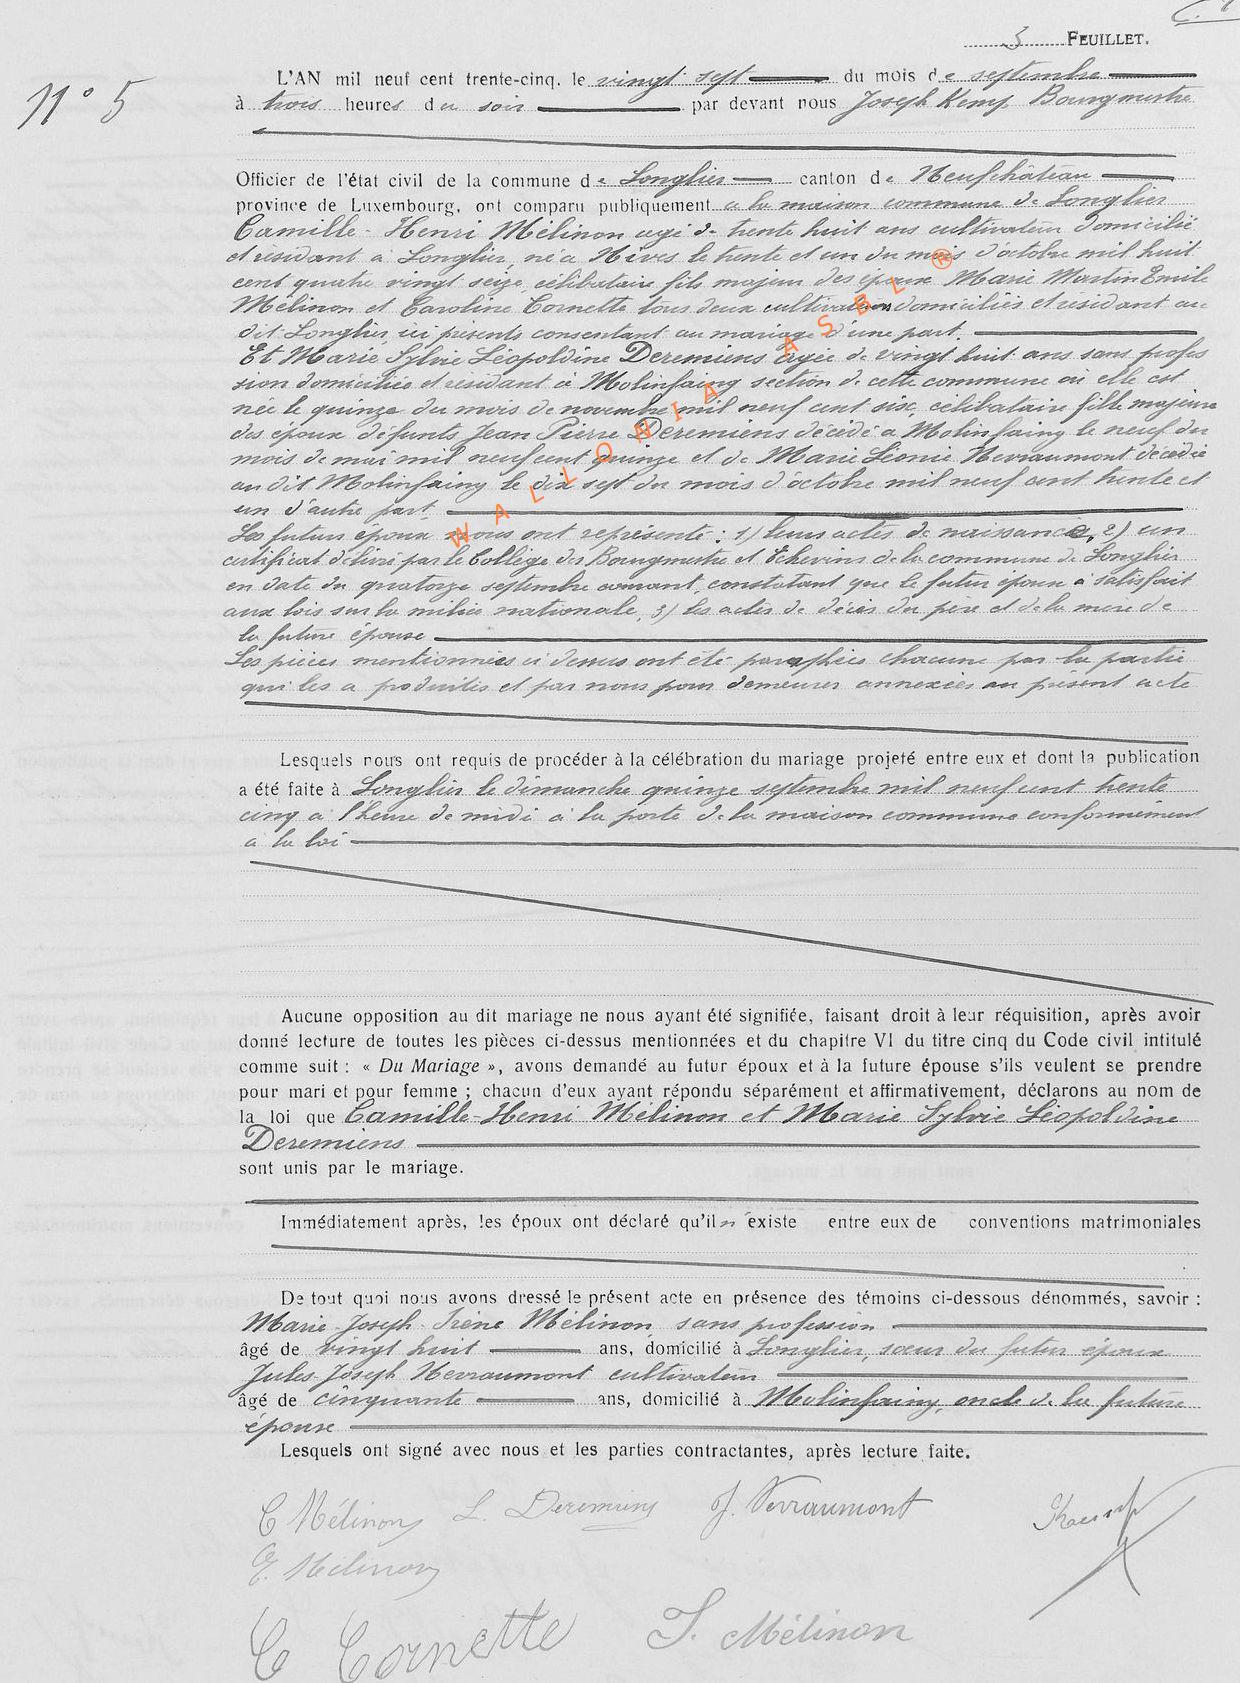 3 FEUILLET.
N° 5
L'AN mil neuf cent trente-cinq, le vingt sept du mois de septembre
à trois heures du soir par devant nous Joseph Kemp Bourgmestre
Officier de l'état civil de la commune de Longlier canton de Neufchâteau
province de Luxembourg, ont comparu publiquement a la maison commune de Longlier
Camille-Henri Mélinon agé de trente huit ans cultivateur domicilié
et résidant à Longlier, né a Nives le trente et un du mois d'octobre mil huit
cent quatre vingt seize, célibataire fils majeur des époux Marie Martin Emile
Mélinon et Caroline Cornette tous deux cultivateurs domiciliés et résidant au
dit Longlier, ici présents consentant au mariage d'une part.
Et Marie Sylvie Léopoldine Deremiens agée de vingt huit ans sans profes
sion domiciliée et résidant à Molinfaing section de cette commune où elle est
née le quinze du mois de novembre mil neuf cent six, célibataire fille majeure
des époux défunts Jean Pierre Deremiens décédé a Molinfaing le neuf du
mois de mai mil neuf cent quinze et de Marie Léonie Nerraumont décédée
au dit Molinfaing le dix sept du mois d'octobre mil neuf cent trente et
un d'autre part.
Les futurs époux nous ont représenté : 1) leurs actes de naissance, 2) un
certificat délivré par le Collège des Bourgmestre et Echevins de la commune de Longlier
en date du quatorze septembre courant, constatant que le futur époux a satisfait
aux lois sur la milice nationale, 3) les actes de décès du père et de la mère de
la future épouse
Les pièces mentionnées ci dessus ont été paraphées chacune par la partie
qui les a produites et par nous pour demeurer annexées au présent acte
Lesquels nous ont requis de procéder à la célébration du mariage projeté entre eux et dont la publication
a été faite à Longlier le dimanche quinze septembre mil neuf cent trente
cinq a l'heure de midi à la porte de la maison commune conformément
a la loi
Aucune opposition au dit mariage ne nous ayant été signifiée, faisant droit à leur réquisition, après avoir
donné lecture de toutes les pièces ci-dessus mentionnées et du chapitre VI du titre cinq du Code civil intitulé
comme suit : « Du Mariage », avons demandé au futur époux et à la future épouse s'ils veulent se prendre
pour mari et pour femme ; chacun d'eux ayant répondu séparément et affirmativement, déclarons au nom de
la loi que Camille-Henri Mélinon et Marie Sylvie Léopoldine
Deremiens
sont unis par le mariage.
Immédiatement après, les époux ont déclaré qu'il n'existe entre eux de conventions matrimoniales
De tout quoi nous avons dressé le présent acte en présence des témoins ci-dessous dénommés, savoir :
Marie-Joseph-Irène Mélinon, sans profession
âgé de vingt huit ans, domicilié à Longlier, sœur du futur époux
Jules-Joseph Nerraumont cultivateur
âgé de cinquante ans, domicilié à Molinfaing, oncle de la future
épouse
Lesquels ont signé avec nous et les parties contractantes, après lecture faite.
C Mélinon L. Deremiens J. Nerraumont Kemp
E. Mélinon
C Cornette I. Mélinon
WALLONIA ASBL ®